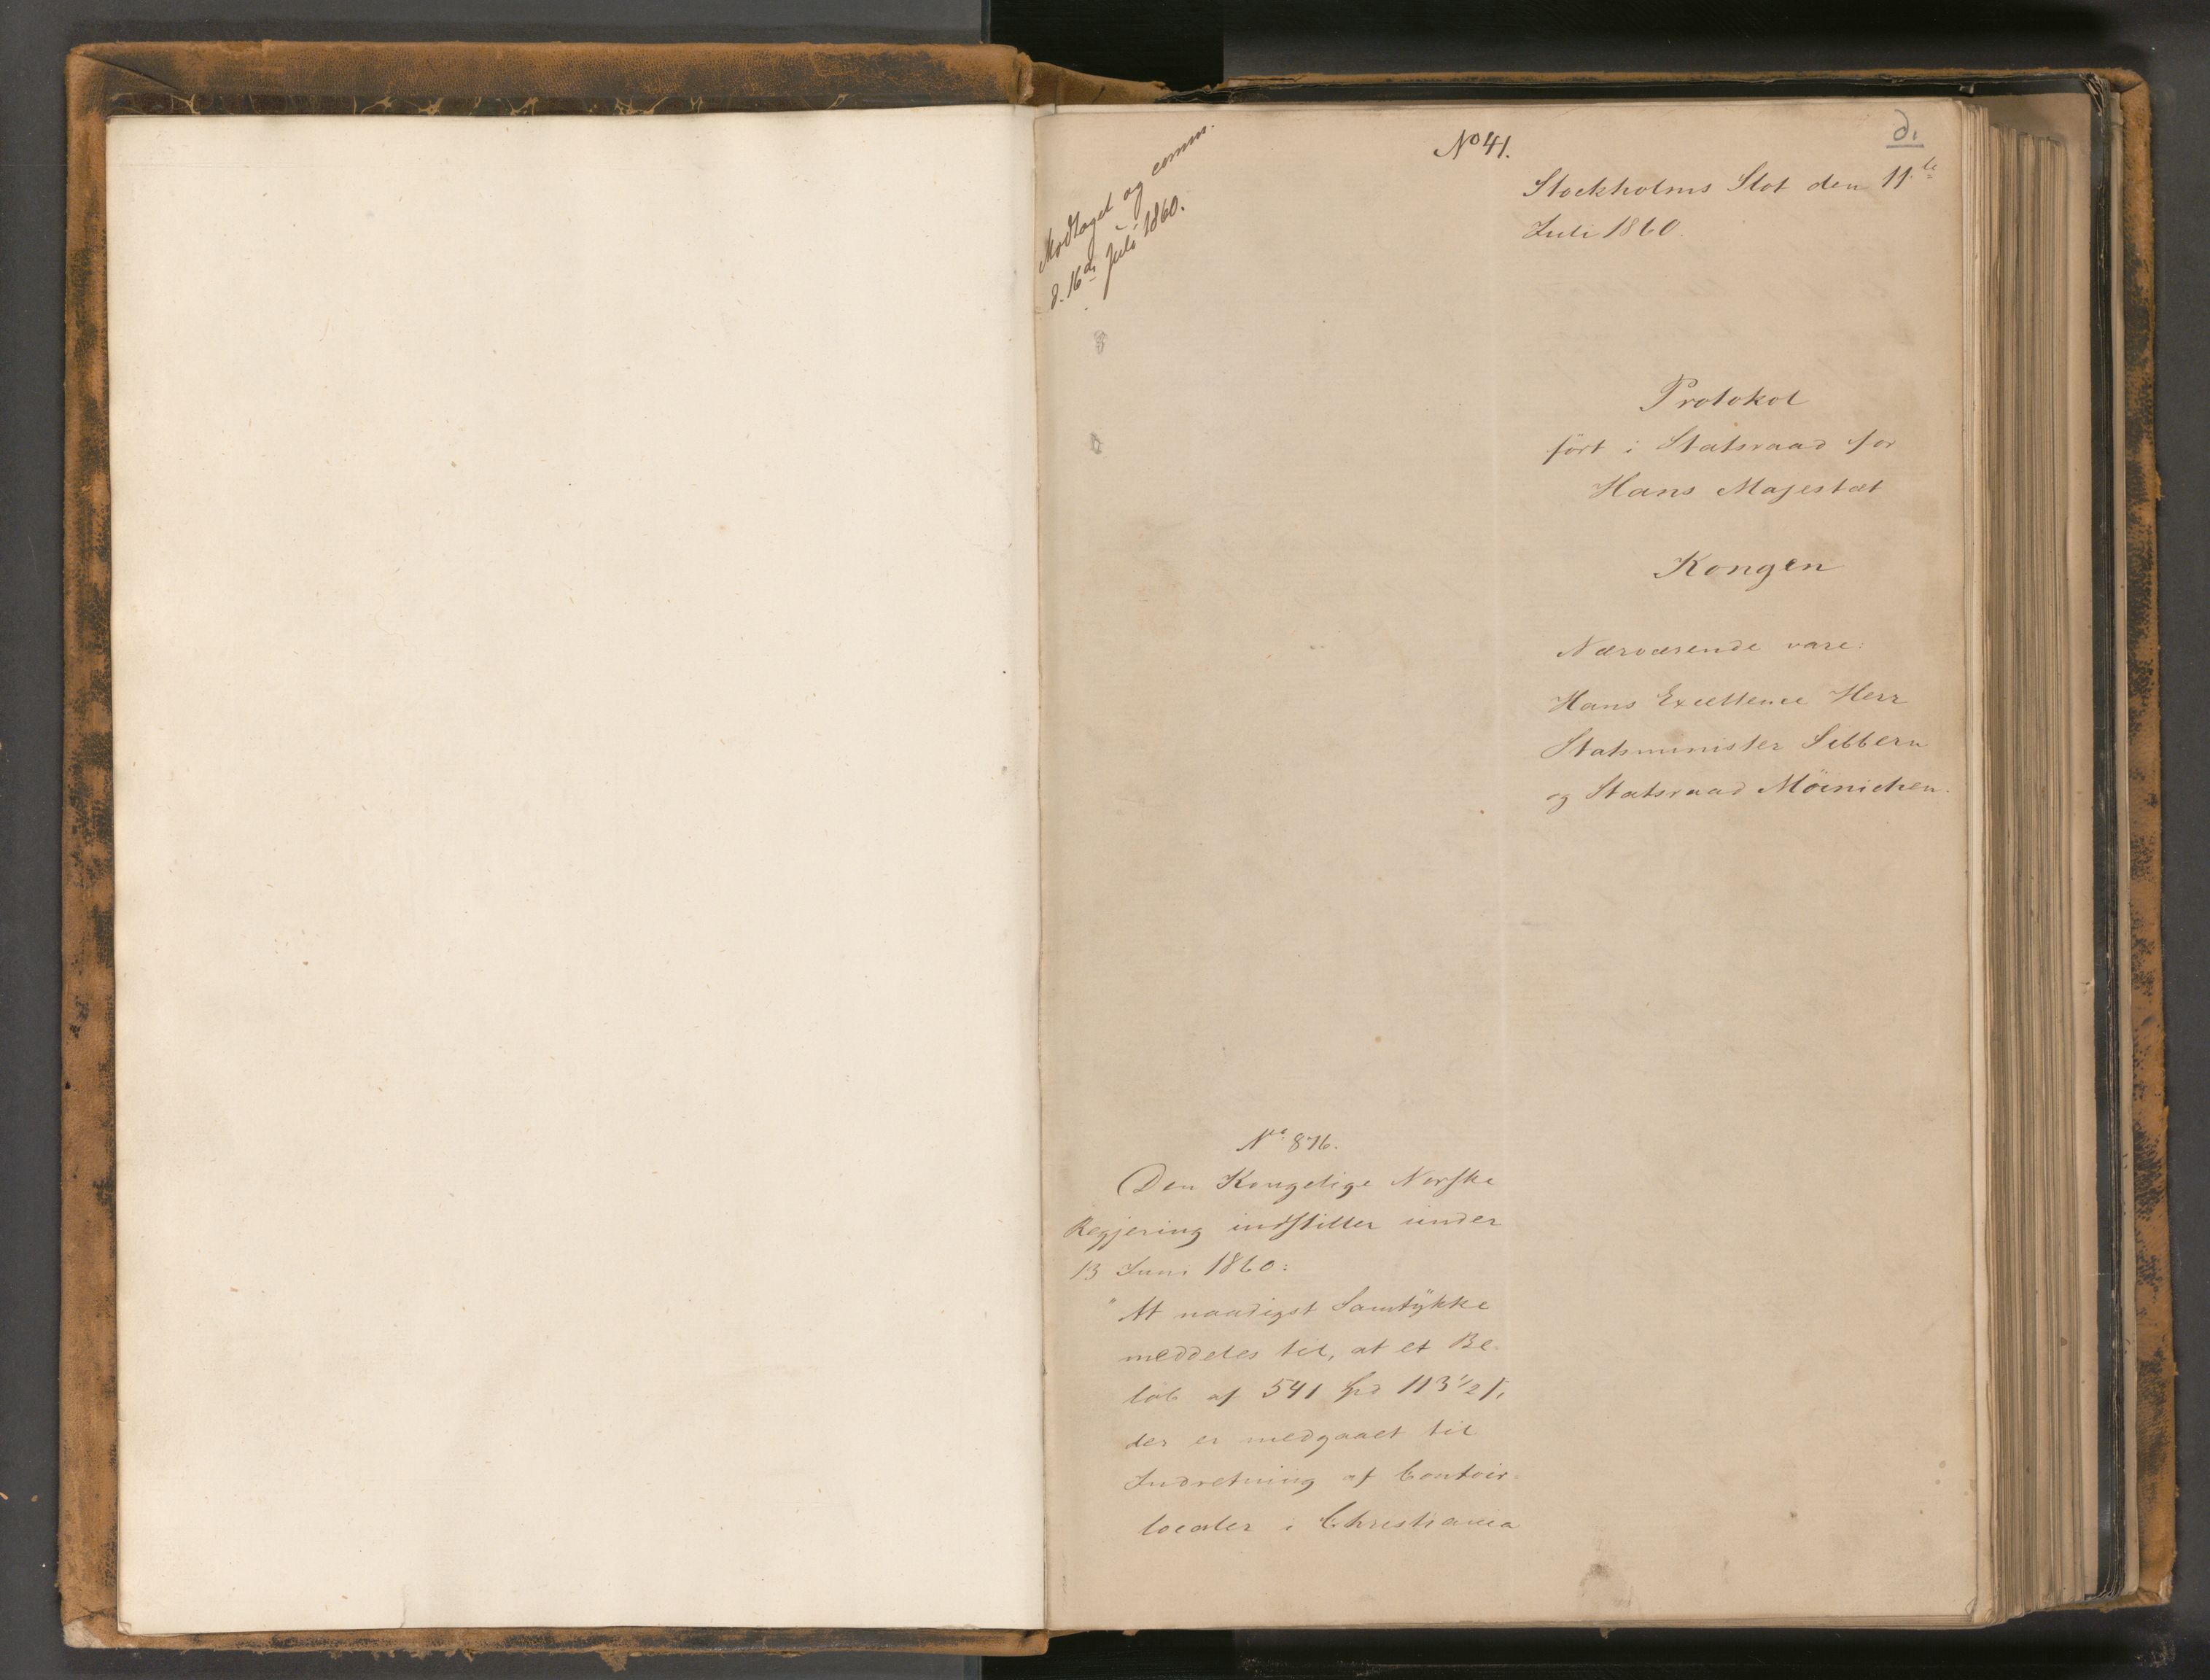 Modtaget og comm.
d. 16de Juli 1860.
No 41.
d.
Stockholms Slot den 11te
Juli 1860.
Protokol
fört i Statsraad for
Hans Majestæt
Kongen
Nærværende vare:
Hans Excellence Herr
Statsminister Sibbern
og Statsraad Möinichen.
No 876.
Den Kongelige Norske
Regjering indstiller under
13 Juni 1860:
"At naadigst Samtÿkke
meddeles til, at et Be-
löb af 541 Spd 113 1/2 ß,
der er medgaaet til
Indretning af Contoir
locoler i Christiania